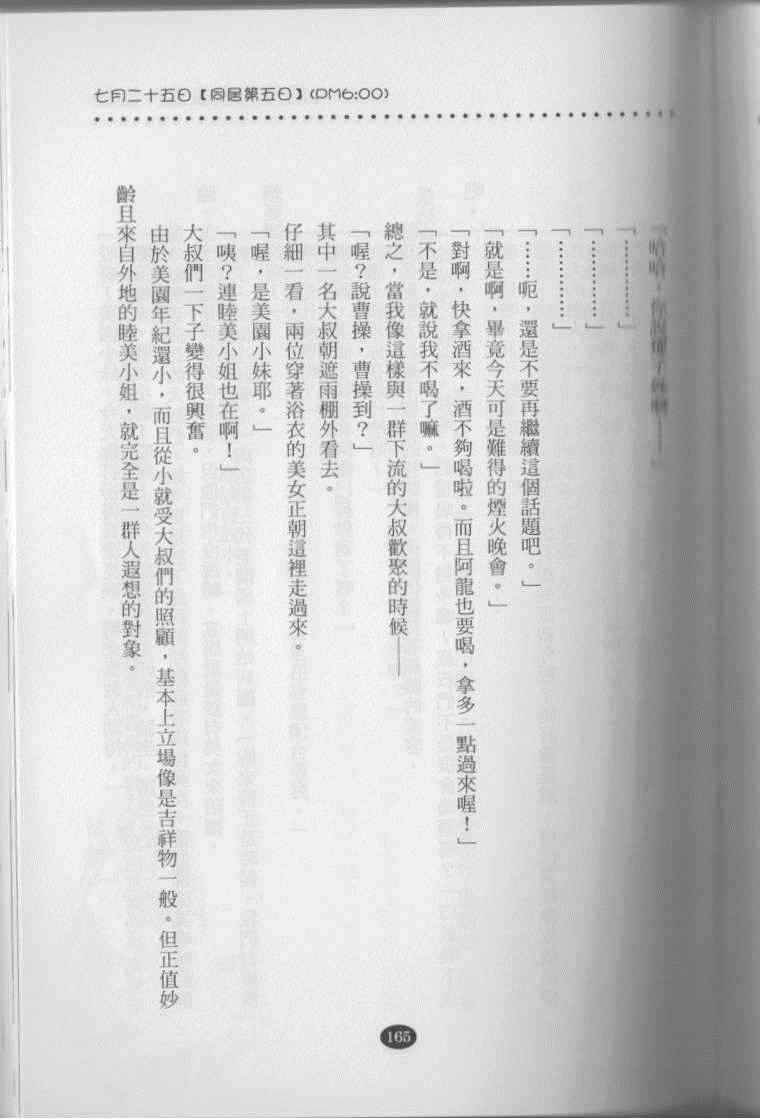 七月二十五日【同居第五日】(PM6:00)
「…………」
「…………」
「…………」
「……呃，還是不要再繼續這個話題吧。」
「就是啊，畢竟今天可是難得的煙火晚會。」
「對啊，快拿酒來，酒不夠喝啦。而且阿龍也要喝，拿多一點過來喔！」
「不是，就說我不喝了嘛。」
總之，當我像這樣與一群下流的大叔歡聚的時候——
「喔？說曹操，曹操到？」
其中一名大叔朝遮雨棚外看去。
仔細一看，兩位穿著浴衣的美女正朝這裡走過來。
「喔，是美園小妹耶。」
「咦？連睦美小姐也在啊！」
大叔們一下子變得很興奮。
由於美園年紀還小，而且從小就受大叔們的照顧，基本上立場像是吉祥物一般。但正值妙
齡且來自外地的睦美小姐，就完全是一群人遐想的對象。
165